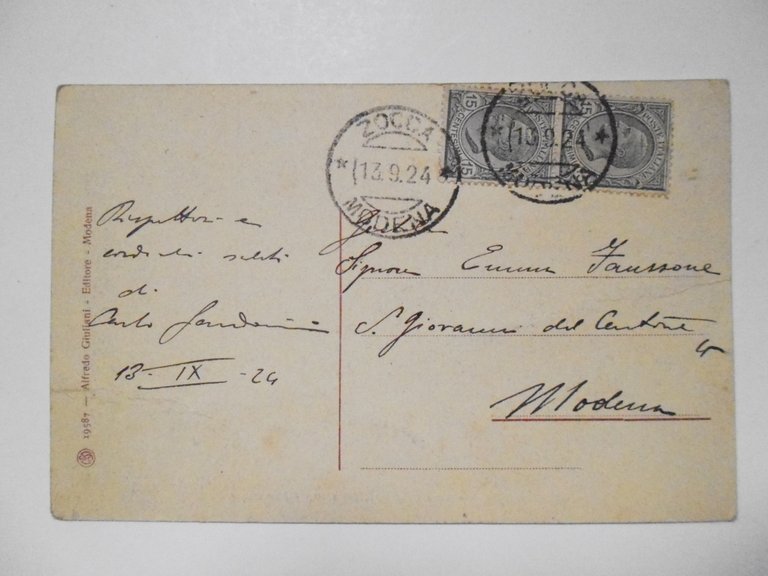 19587 — Alfredo Giuliani - Editore - Modena
Rispettosi e
cordiali saluti
di
Carlo
13-IX-24
ZOCCA
13.9.24
MODENA
15
15
POSTE ITALIANE
13.9.24
Signora Emma Faussone
S. Giovanni del Cantone
Modena